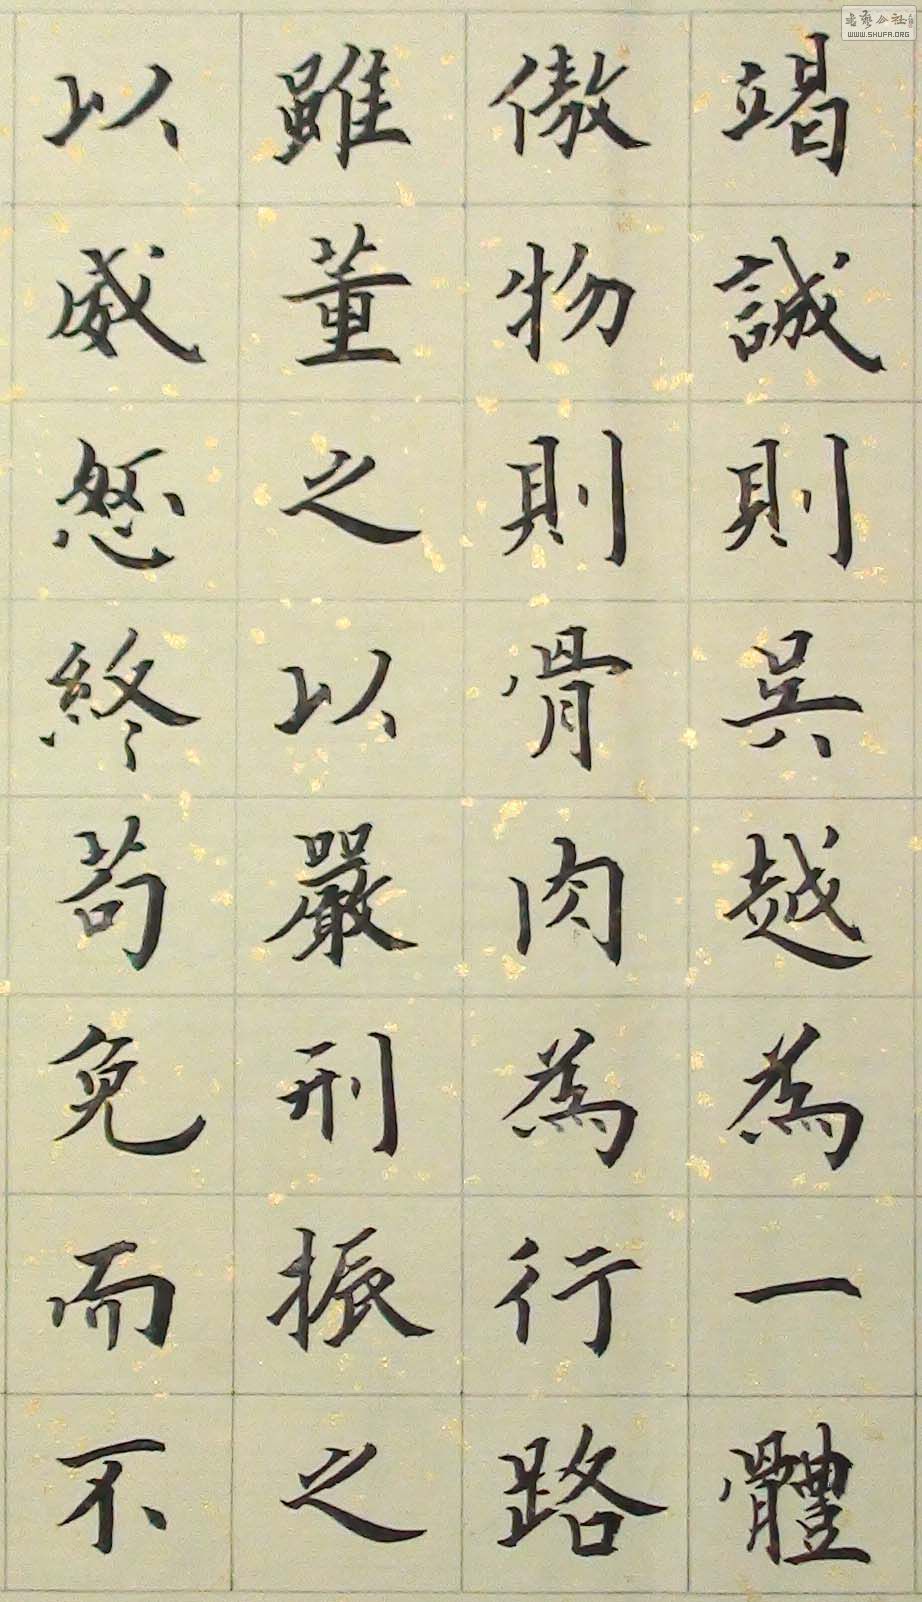 竭誠則吳越為一體
傲物則骨肉為行路
雖董之以嚴刑振之
以威怒終苟免而不
WWW.SHUFA.ORG